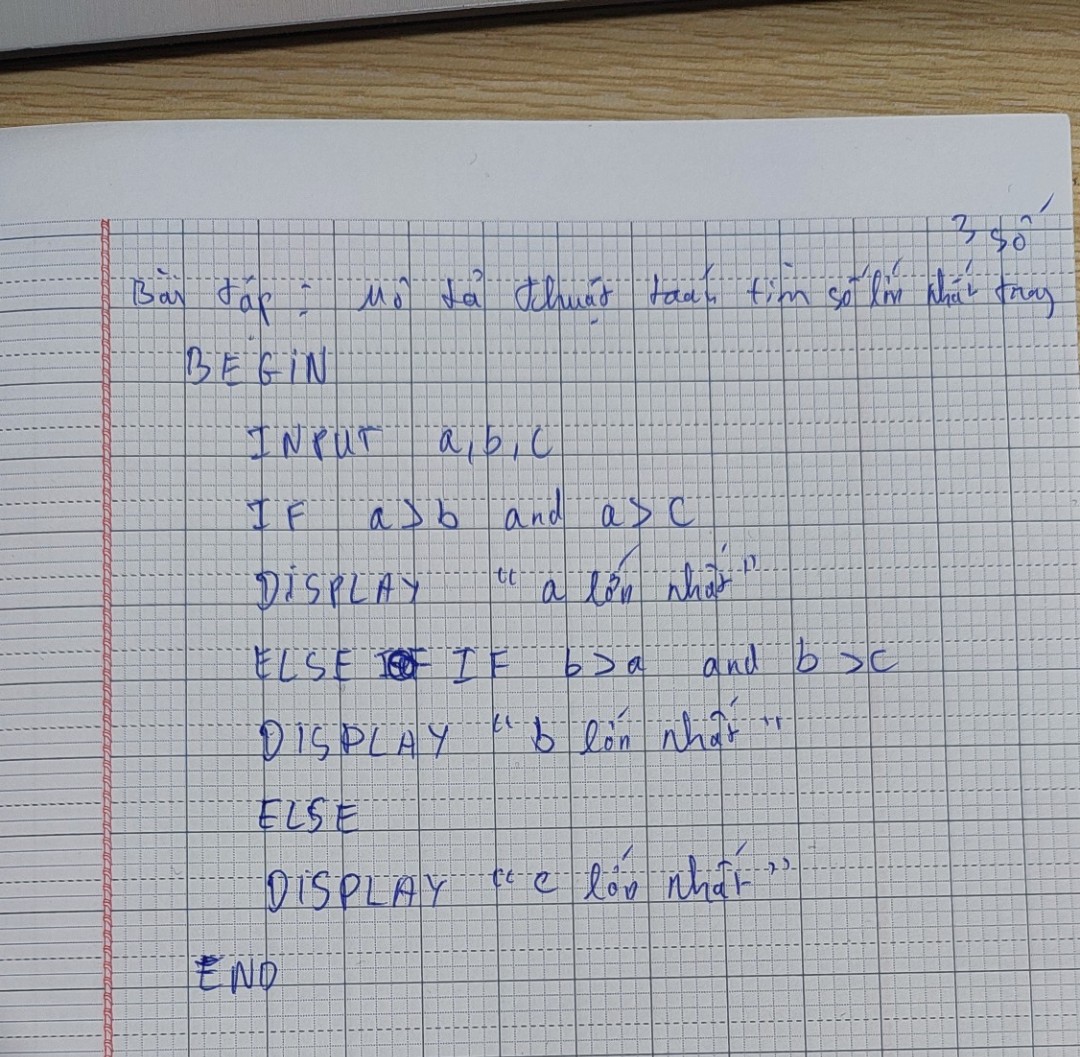 3 số
Bài tập : Mô tả thuật toán tìm số lớn nhất trong
BEGIN
INPUT a, b, c
IF a > b and a > c
DISPLAY “ a lớn nhất ”
ELSE IF b > a and b > c
DISPLAY “ b lớn nhất ”
ELSE
DISPLAY “ c lớn nhất ”
END